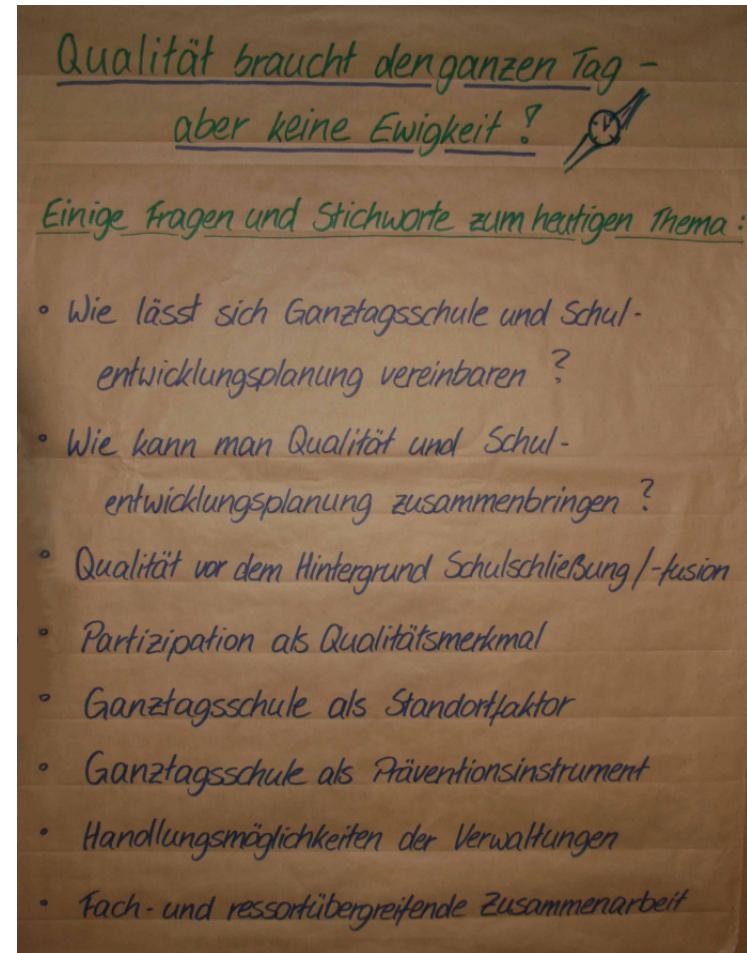 Qualität braucht den ganzen Tag -
aber keine Ewigkeit!
Einige Fragen und Stichworte zum heutigen Thema:
• Wie lässt sich Ganztagsschule und Schul-
entwicklungsplanung vereinbaren?
• Wie kann man Qualität und Schul-
entwicklungsplanung zusammenbringen?
• Qualität vor dem Hintergrund Schulschließung/-fusion
• Partizipation als Qualitätsmerkmal
• Ganztagsschule als Standortfaktor
• Ganztagsschule als Präventionsinstrument
• Handlungsmöglichkeiten der Verwaltungen
• Fach- und ressortübergreifende Zusammenarbeit